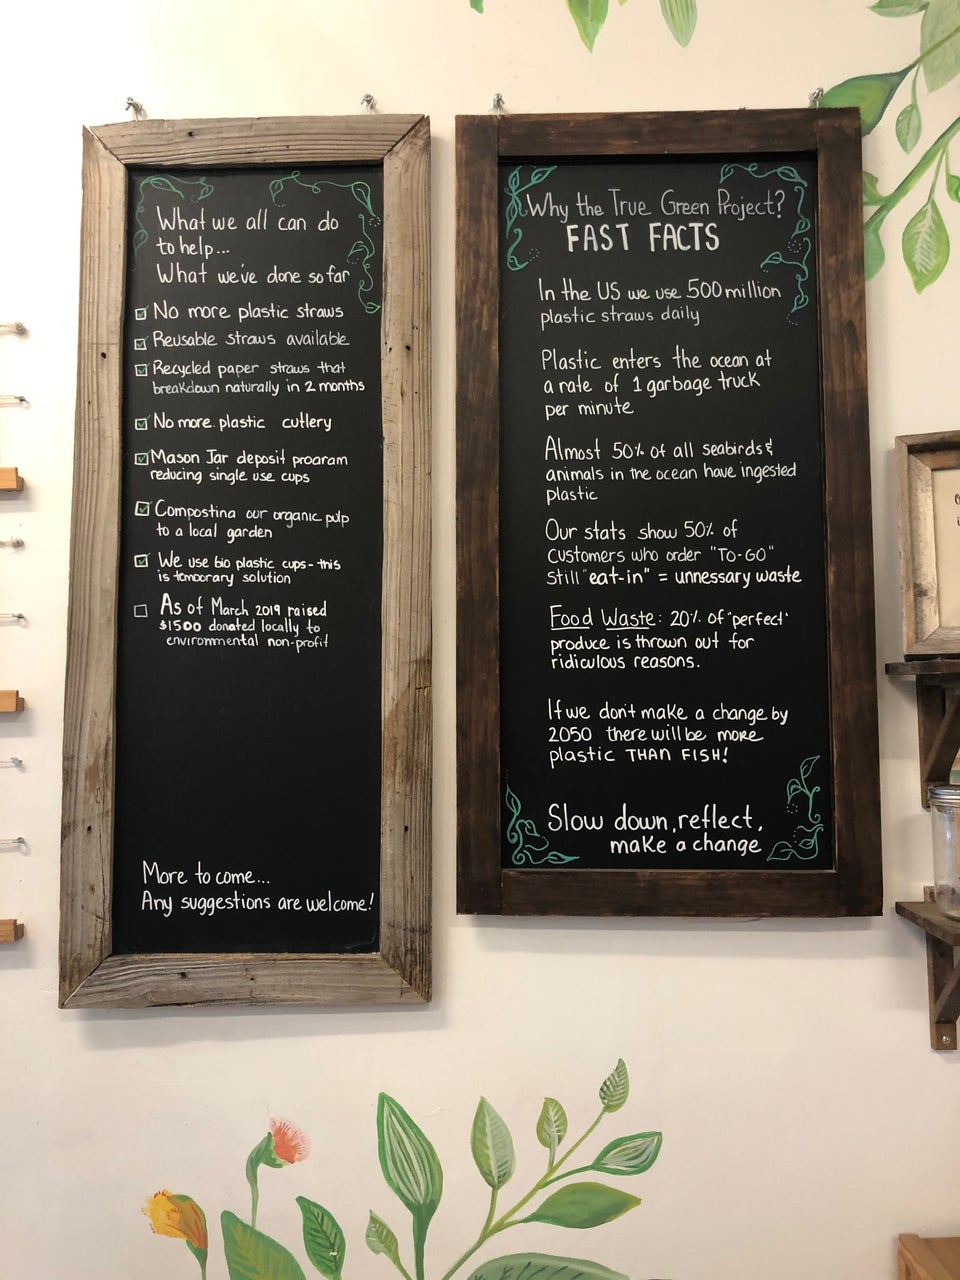 What we all can do
to help...
What we've done so far
No more plastic straws
Reusable straws available
Recycled paper straws that
breakdown naturally in 2 months
No more plastic cutlery
Mason Jar deposit program
reducing single use cups
Composting our organic pulp
to a local garden
We use bio plastic cups - this
is temporary solution
As of March 2019 raised
$1500 donated locally to
environmental non-profit
More to come...
Any suggestions are welcome!
Why the True Green Project?
FAST FACTS
In the US we use 500 million
plastic straws daily
Plastic enters the ocean at
a rate of 1 garbage truck
per minute
Almost 50% of all seabirds &
animals in the ocean have ingested
plastic
Our stats show 50% of
customers who order "TO-GO"
still "eat-in" = unnessary waste
Food Waste: 20% of "perfect"
produce is thrown out for
ridiculous reasons.
If we don't make a change by
2050 there will be more
plastic THAN FISH!
Slow down, reflect,
make a change